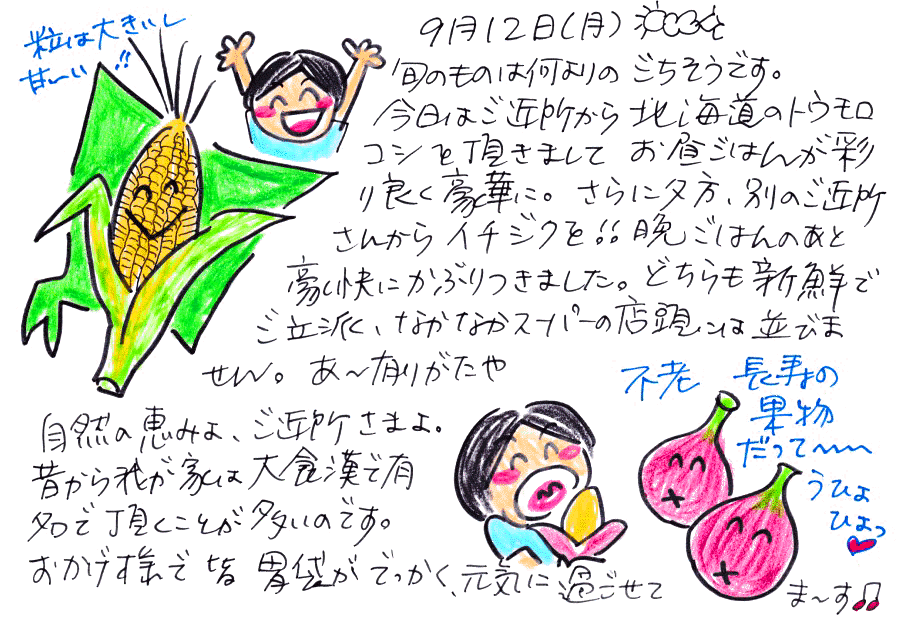 粒は大きいし
甘〜い!!
9月12日(月)
旬のものは何よりのごちそうです。
今日はご近所から北海道のトウモロ
コシを頂きまして お昼ごはんが彩
り良く豪華に。さらに夕方、別のご近所
さんからイチジクを!!晩ごはんのあと
豪快にかぶりつきました。どちらも新鮮で
ご立派、なかなかスーパーの店頭には並びま
せん。あ〜有りがたや
自然の恵みよ、ご近所さまよ。
昔から我が家は大食漢で有
名で頂くことが多いのです。
おかげ様で皆胃袋がでっかく、元気に過ごせて
ま〜す♫
不老 長寿の
果物
だって〜〜
うひょ
ひょっ